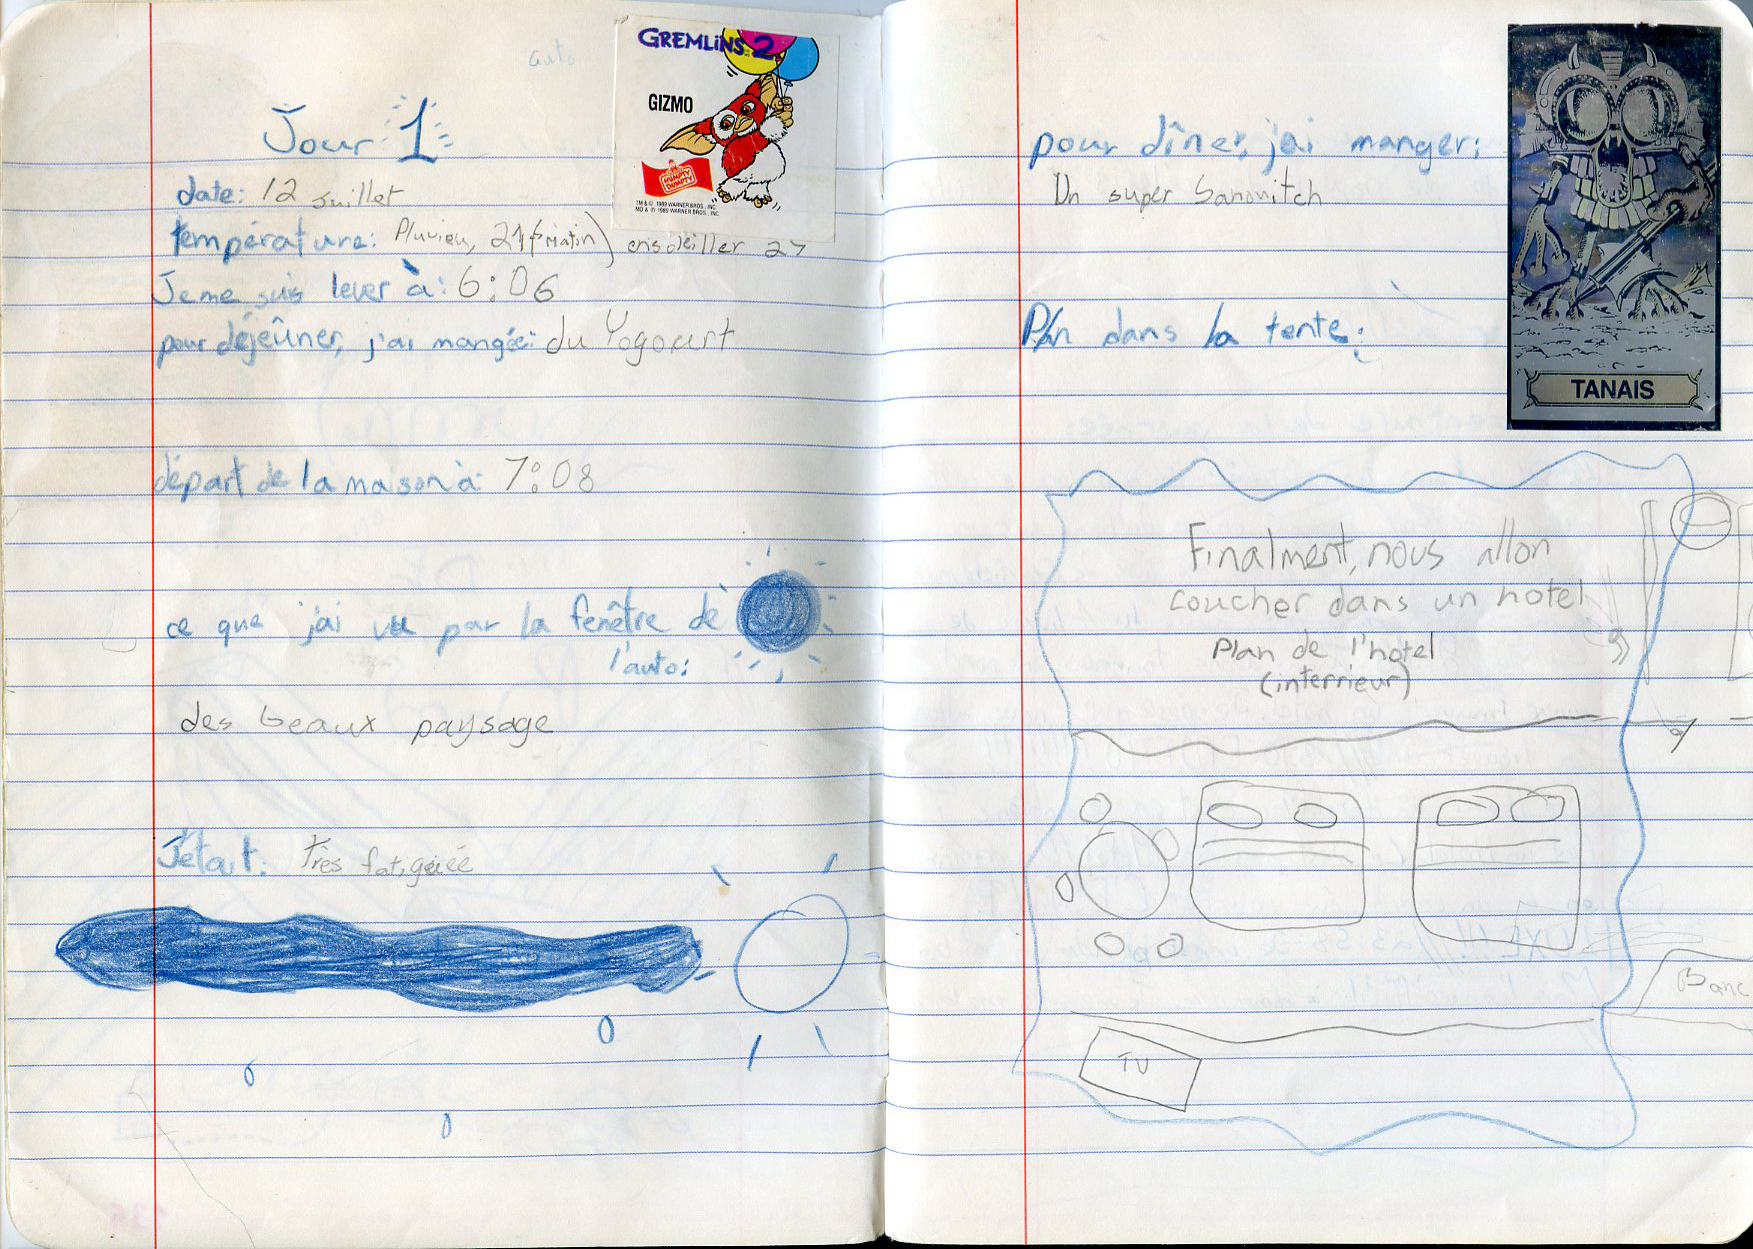 auto
GREMLINS 2
GIZMO
HUMPTY DUMPTY
TM & © 1989 WARNER BROS., INC.
MD & © 1989 WARNER BROS., INC.
Jour 1
date: 12 Juillet
température: Pluvieu, 21 (matin) ensoleiller 27
Je me suis lever à: 6:06
pour déjeûner, j'ai mangée: du Yogourt
départ de la maison à: 7:08
ce que j'ai vu par la fenêtre de
l'auto:
des beaux paysage
J'était: très fatigéée
pour dîner, j'ai manger:
Un super sandwitch
TANAIS
Plan dans la tente:
Finalment, nous allon
coucher dans un hotel
Plan de l'hotel
(interrieur)
Banc
TV